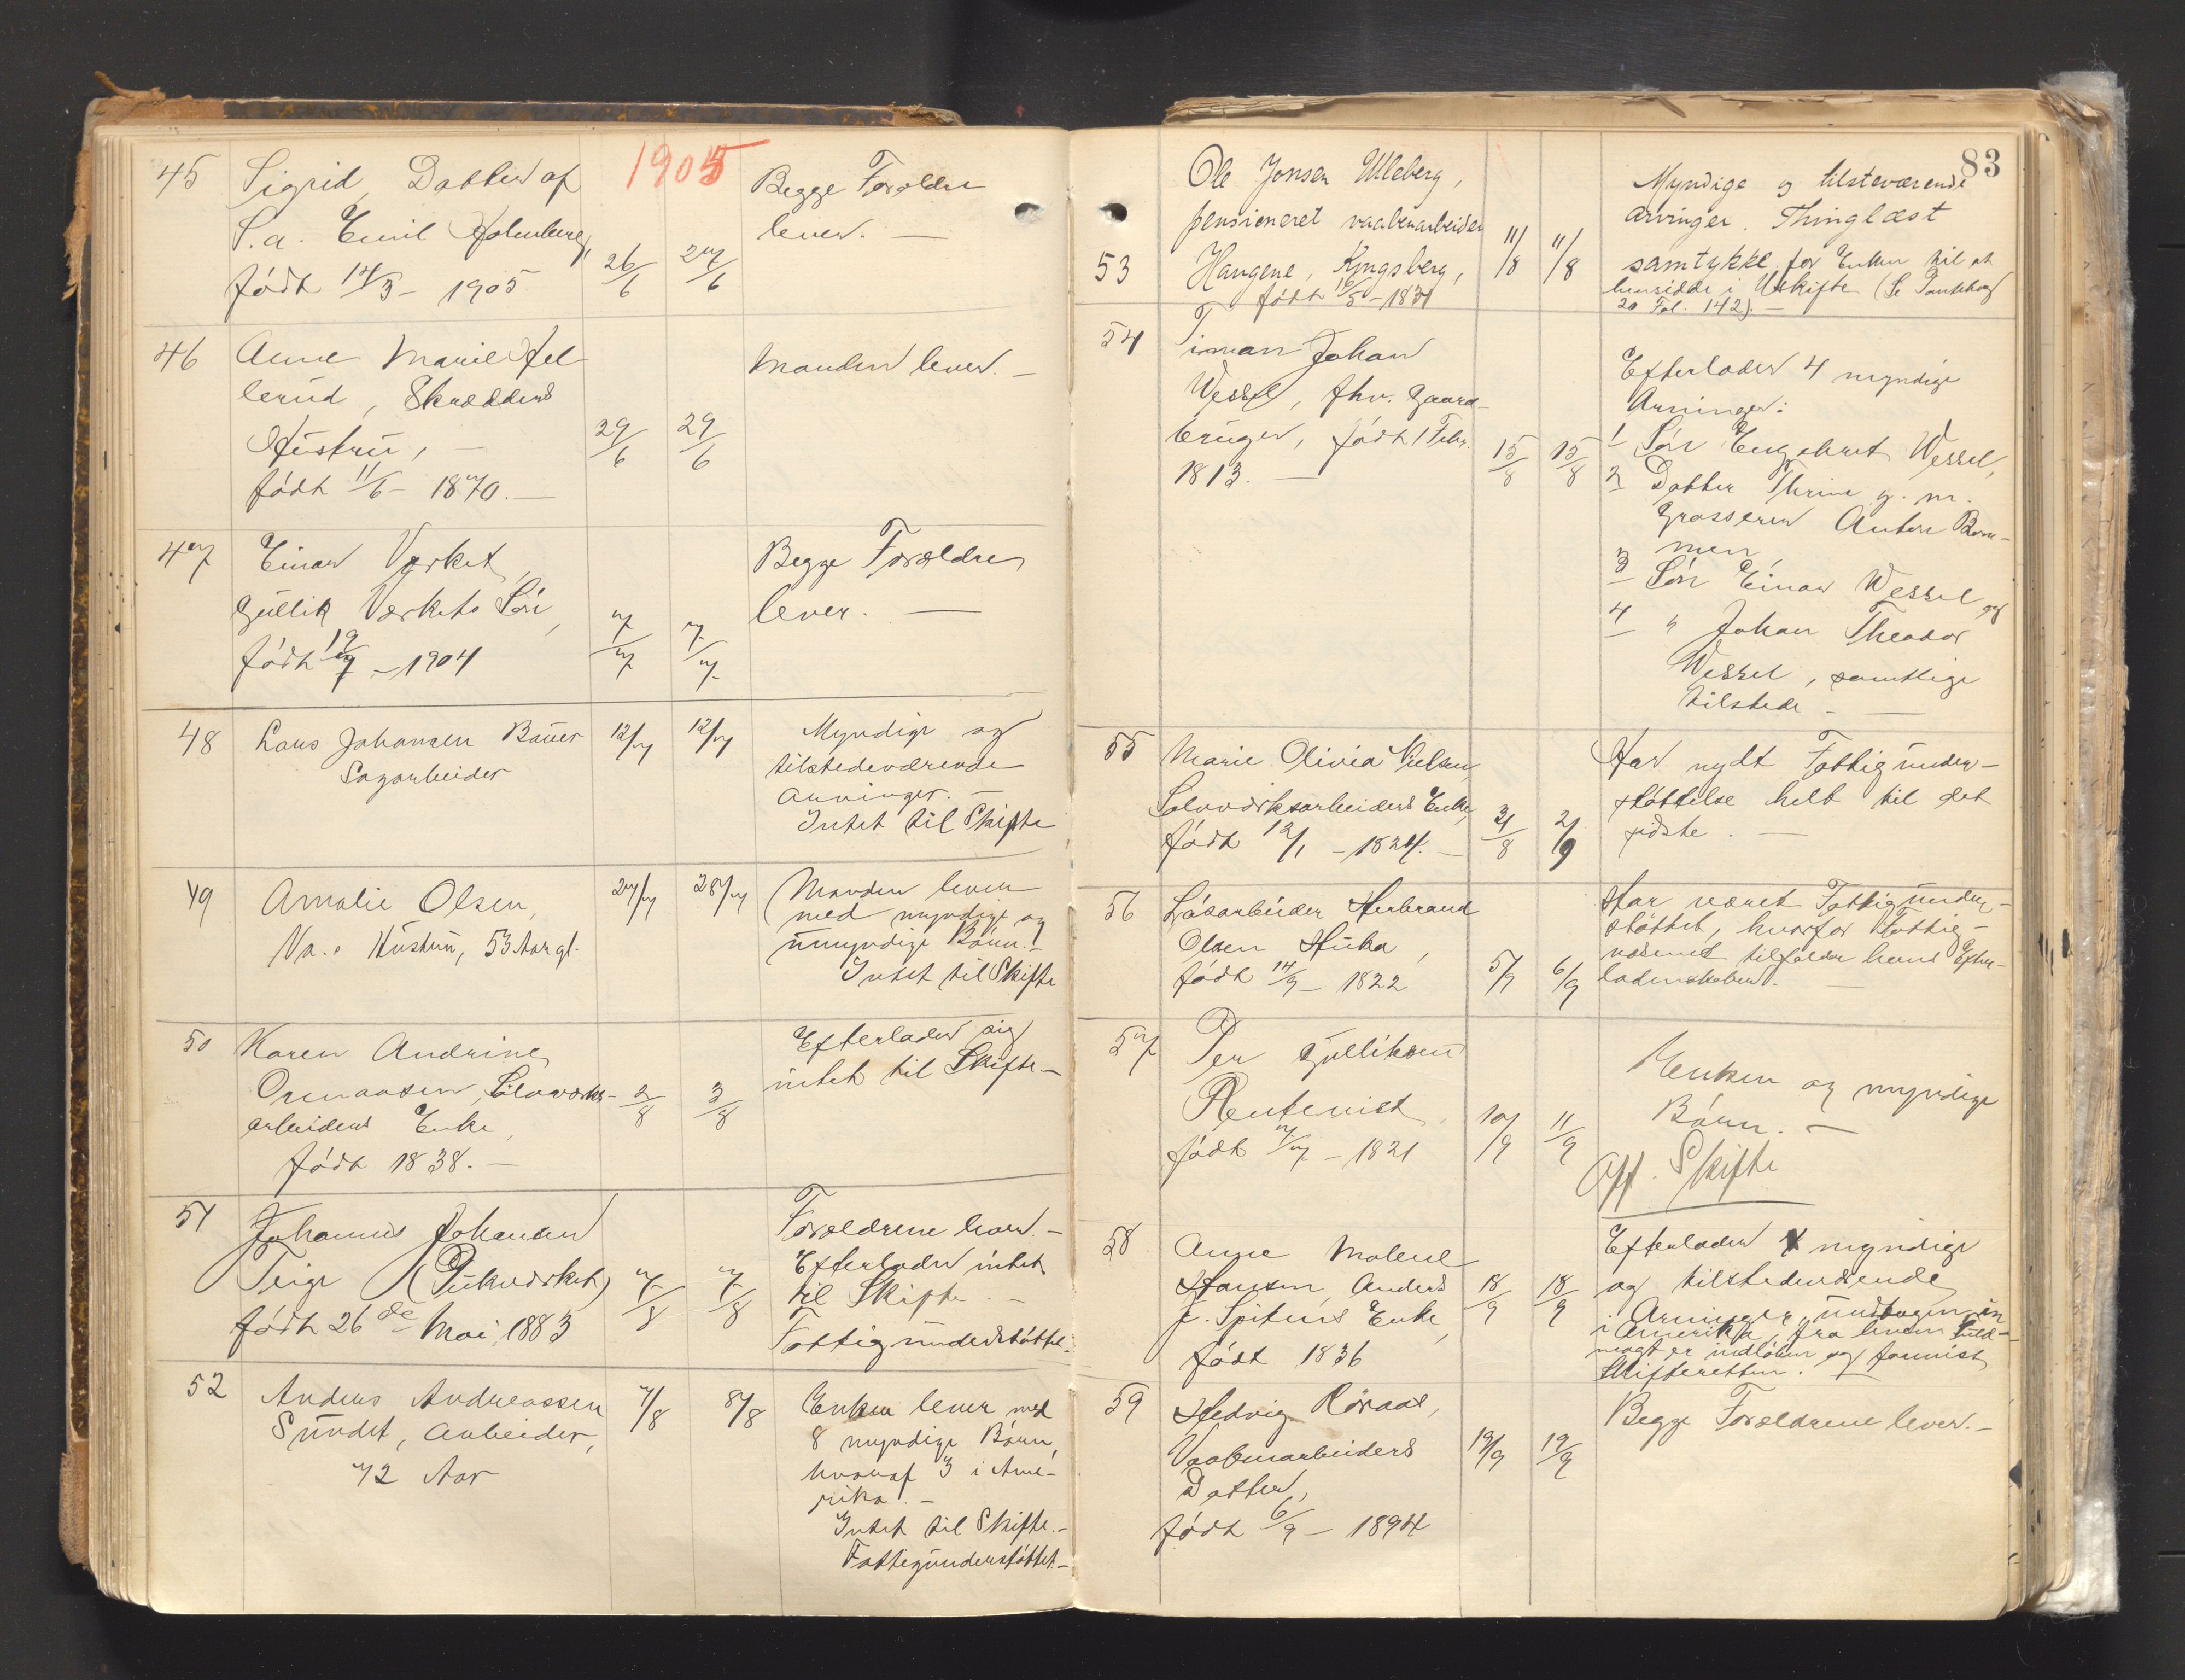 1905
45 Sigrid, Datter af
S.a. Emil Holmberg,
født 14/3 - 1905
26/6 27/6
Begge Forældre
lever. —
46 Anne Marie Hel
lerud, Skrædders
Hustru, —
født 11/6 - 1870. —
29/6 29/6
Manden lever. —
47 Einar Værket,
Gullik Værkets Søn,
født 19/7 - 1904
7/7 7/7
Begge Forældre
lever. —
48 Lars Johansen Bauer
Sagarbeider
12/7 12/7
Myndige og
tilstedeværende
arvinger. —
Intet til Skifte
49 Amalie Olsen,
Va.s Hustru, 53 Aar gl.
27/7 28/7
Manden lever
med myndige og
umyndige Børn. —
Intet til Skifte
50 Karen Andrine
Ormaasen, Sølvværks-
arbeiders Enke,
født 1838. —
2/8 3/8
Efterlader sig
intet til Skifte —
51 Johannes Johansen
Teige (Pukværket)
født 26de Mai 1883
7/8 7/8
Forældrene lever. —
Efterlader intet
til Skifte. —
Fattigunderstøttet.
52 Anders Andreassen
Sundet, Arbeider,
72 Aar
7/8 8/8
Enken lever med
8 myndige Børn,
hvoraf 3 i Ame-
rika. —
Intet til Skifte. —
Fattigunderstøttet. —
83
Ole Jonsen Uleberg,
pensioneret vaabenarbeider
53 Haugene, Kongsberg,
født 16/5 - 1831
11/8 11/8
Myndige og tilsteværende
arvinger. Thinglæst
samtykke for Enken til at
hensidde i Uskifte (Se Pantebog
20 Fol. 142). —
54 Timan Johan
Wessel, fhv. Gaard-
bruger, født 1 Febr.
1813. —
15/8 15/8
Efterlader 4 myndige
Arvinger:
1 Søn Engebret Wessel,
2 Datter Thrine g. m.
Grosserer Anton Bom-
men,
3 Søn Einar Wessel og
4 " Johan Theodor
Wessel, samtlige
tilstede —
55 Marie Olivia Nielsen,
Sølvværksarbeiders Enke,
født 12/1 - 1824. —
31/8 2/9
Har nydt Fattigunder-
støttelse helt til det
sidste. —
56 Løsarbeider Herbrand
Olsen Huka,
født 14/9 - 1822
5/9 6/9
Har været Fattigunder-
støttet, hvorfor Fattig-
væsenet tilfalder hans Efter-
ladenskaber. —
57 Per Gulliksen
Rentenist,
født 7/7 - 1821
10/9 11/9
Enken og myndige
Børn. —
Off. Skifte
58 Anne Malene
Hansen, Anders
J. Spitens Enke,
født 1836
18/9 18/9
Efterlader myndige
og tilstedeværende
Arvinger, undtagen en
i Amerika, fra hvem fuld-
magt er indløben og forevist
Skifteretten. —
59 Hedvig Røraas,
Vaabenarbeiders
Datter,
født 6/9 - 1894
19/9 19/9
Begge Forældrene lever. —